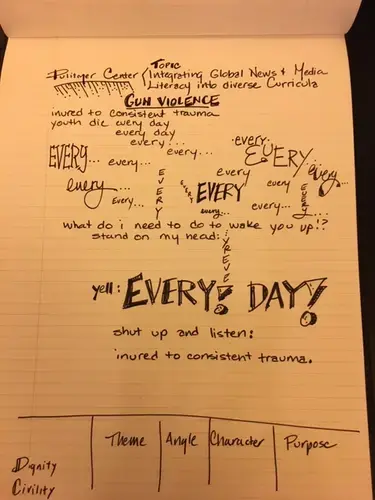 Pulitzer Center
Topic
Integrating Global News & Media
Literacy into diverse Curricula
GUN VIOLENCE
inured to consistent trauma
youth die every day
every day
every...
every...
EVERY...
every...
every...
EVERY...
every
every...
every...
EVERY
EVERY
EVERY
every
every...
EVERY
every...
every...
every...
what do i need to do to wake you up!?
stand on my head:
EVERY...
yell: EVERY! DAY!
shut up and listen:
inured to consistent trauma.
Theme
Angle
Character
Purpose
Dignity
Civility